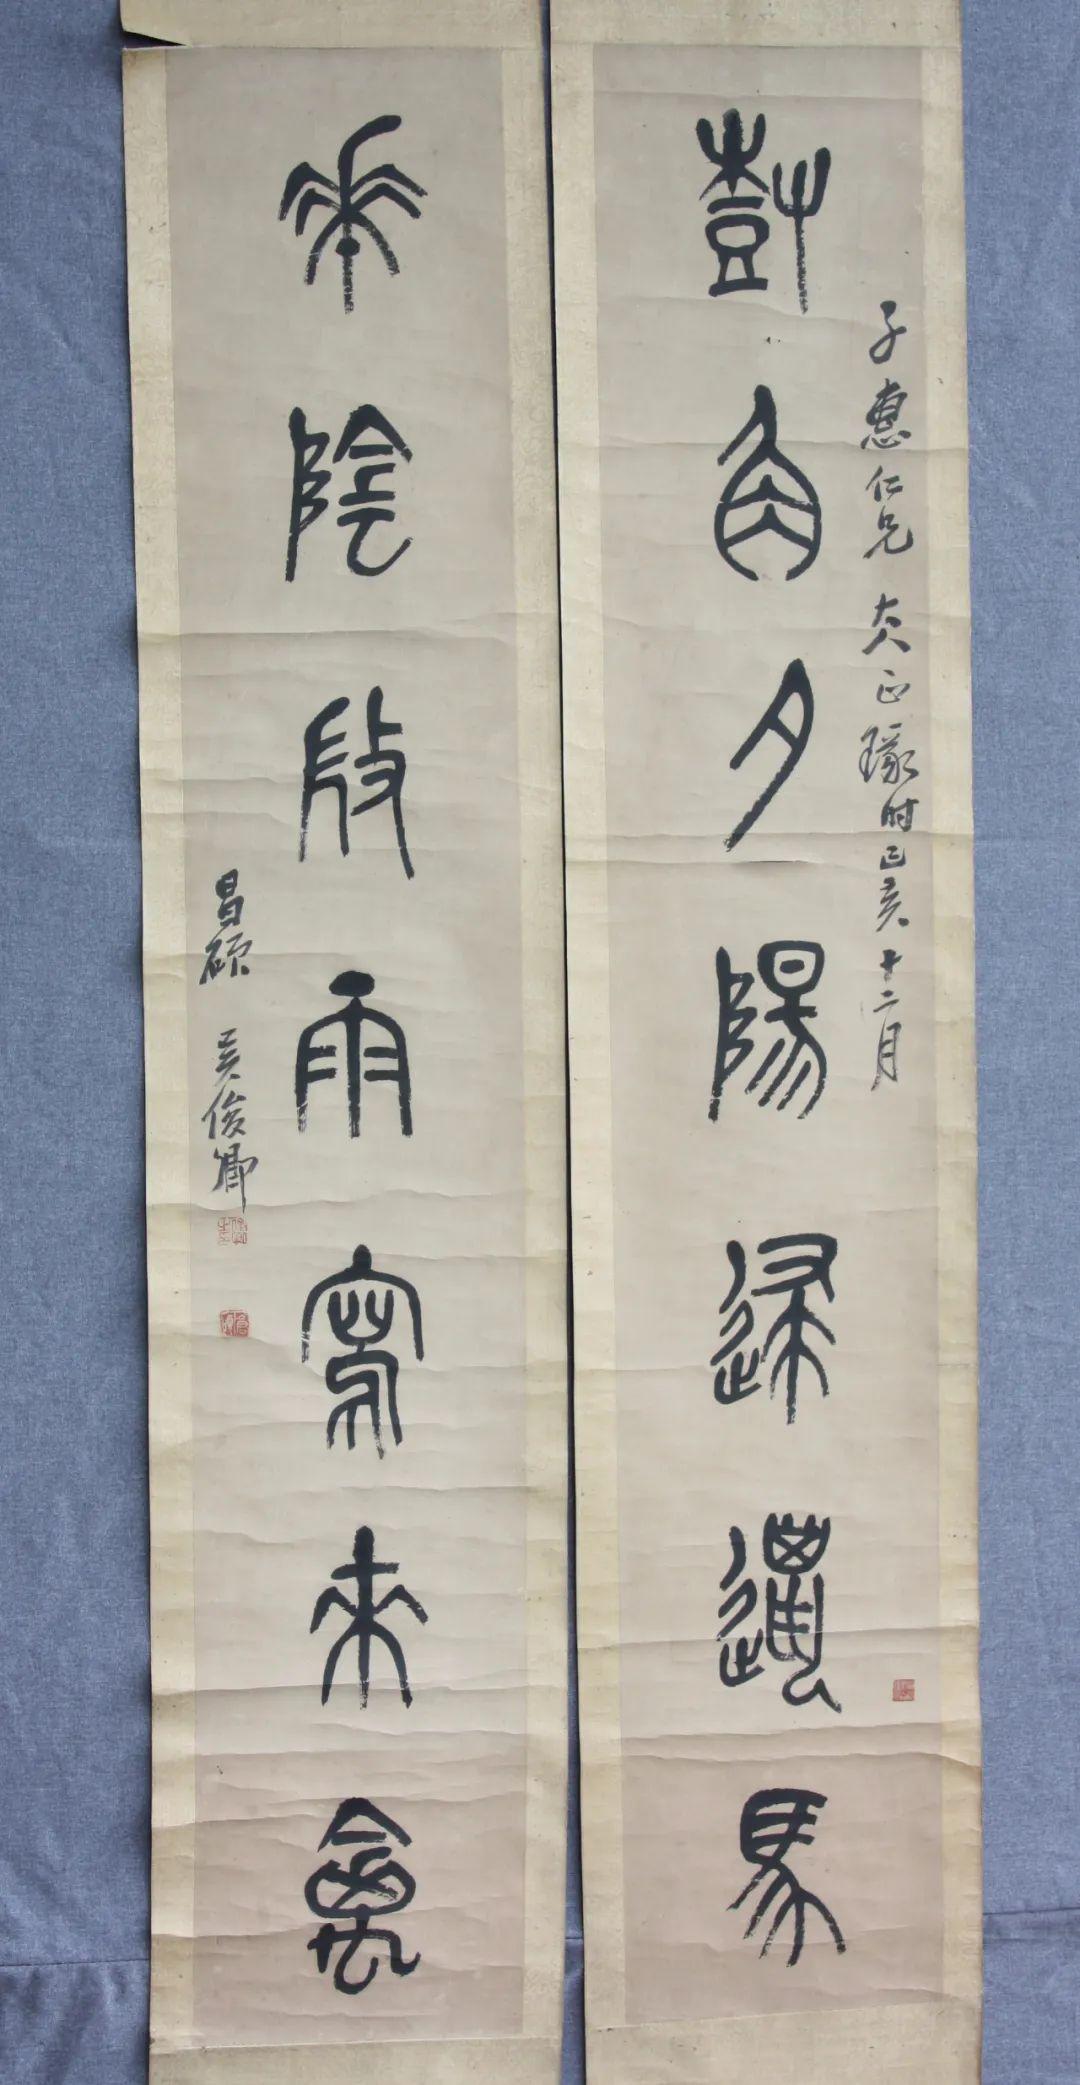 樹角夕陽歸邋馬
子惠仁兄大人正瑑時己亥十二月
華陰雨寫來禽
昌碩 吳俊卿